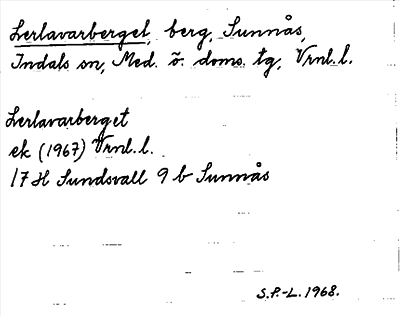 Lerlavarberget, berg, Sunnås,
Indals sn, Med. ö. doms. tg, Vrnl. l.
Lerlavarberget
ek (1967) Vrnl. l.
17 H Sundsvall 9 b Sunnås
S.P.-L. 1968.